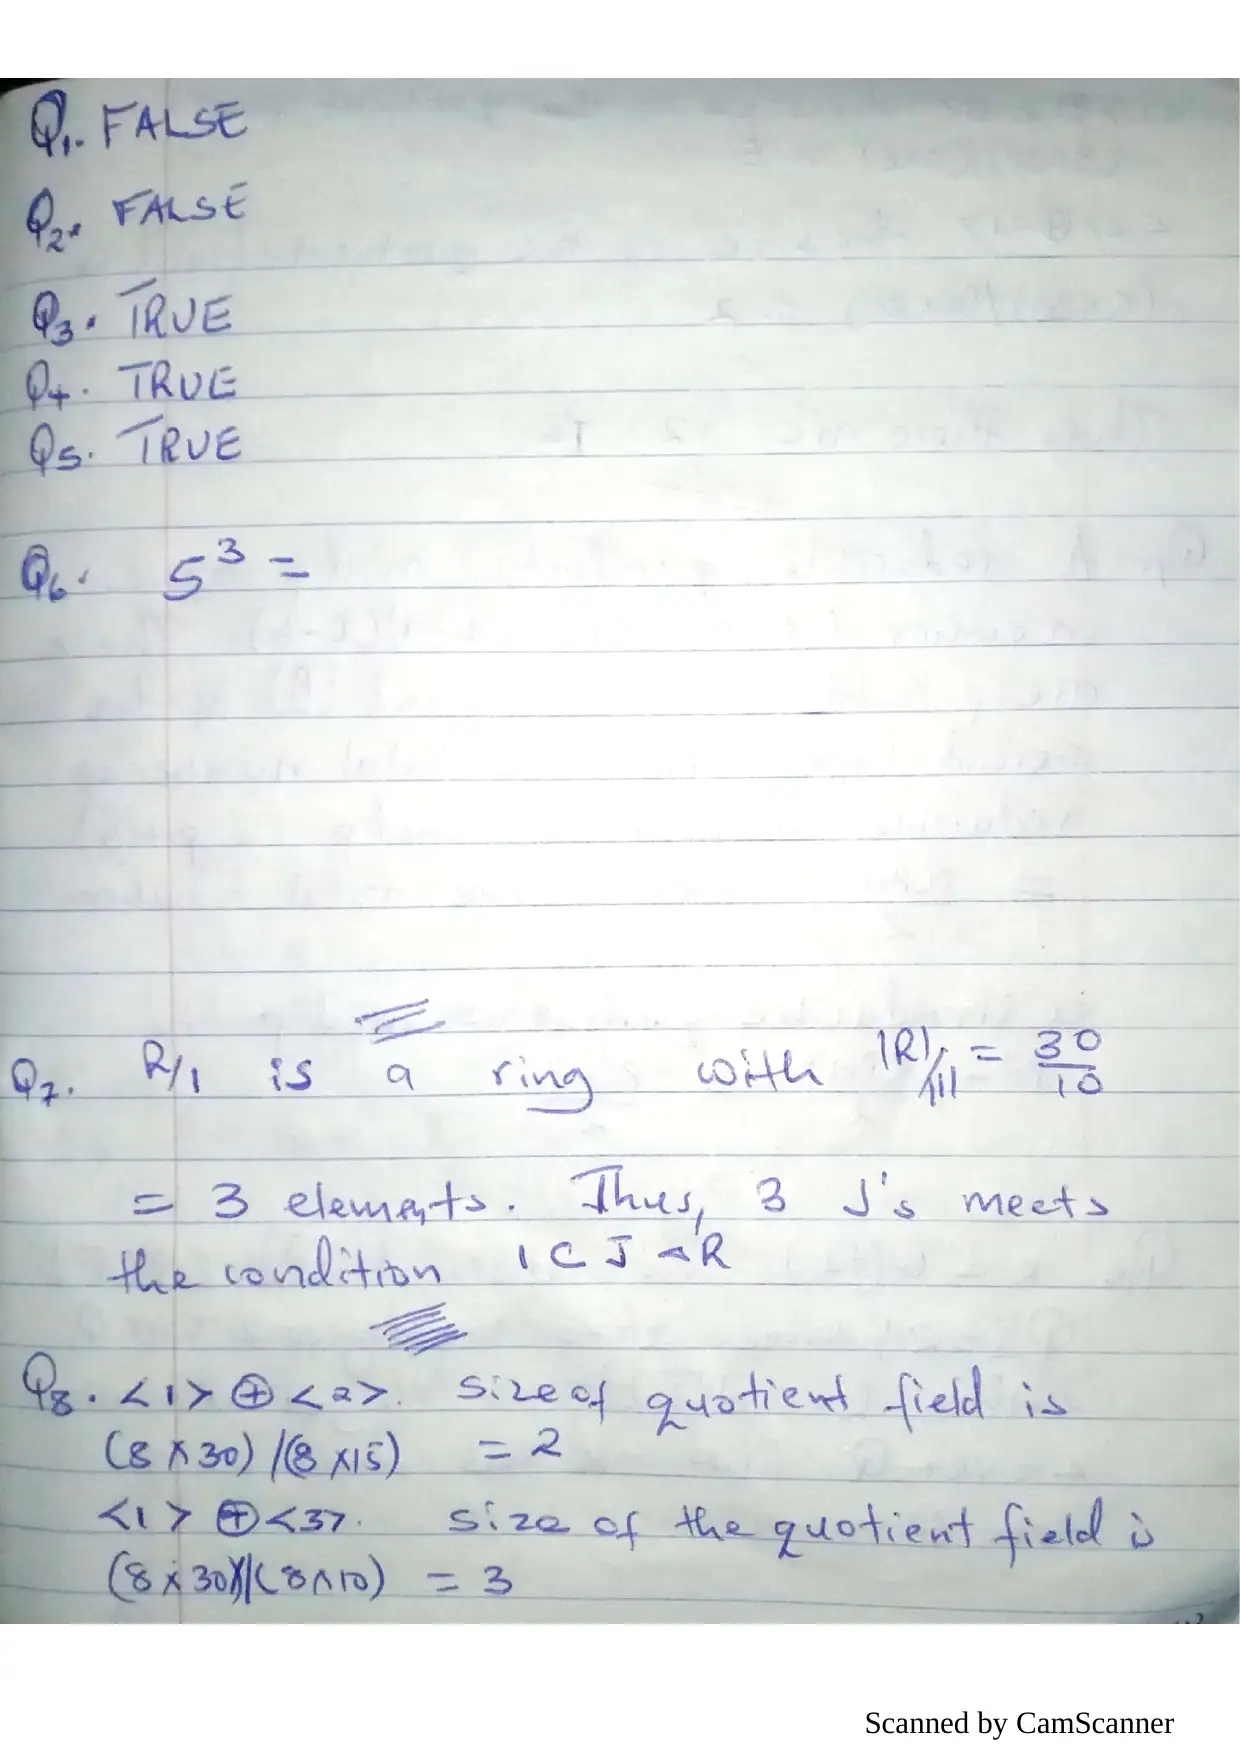 Q1. FALSE
Q2. FALSE
Q3. TRUE
Q4. TRUE
Q5. TRUE
Q6. 5³ =
Q7. R/I is a ring with |R|/|I| = 30/10
= 3 elements. Thus, 3 J's meets
the condition I ⊂ J ◁ R
Q8. <1> ⊕ <2>. size of quotient field is
(8 × 30) / (8 × 15) = 2
<1> ⊕ <3>. size of the quotient field is
(8 × 30) / (8 × 10) = 3
Scanned by CamScanner